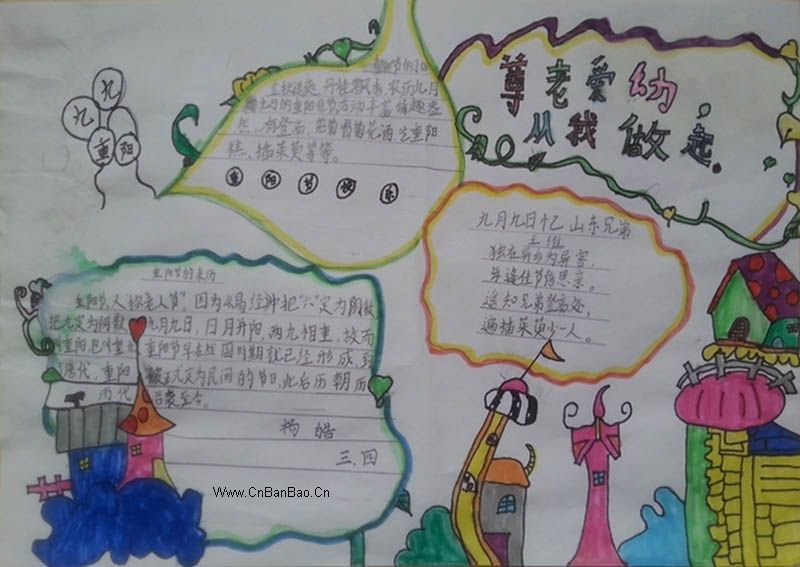 尊老爱幼，
从我做起.
九 九
重 阳
金秋送爽，丹桂飘香，农历九月
九日的重阳佳节活动丰富，情趣盎
然，有登高、赏菊、喝菊花酒、吃重阳
糕、插茱萸等等。
重 阳 节 快 乐
九月九日忆山东兄弟
王维
独在异乡为异客，
每逢佳节倍思亲。
遥知兄弟登高处，
遍插茱萸少一人。
重阳节的来历
重阳节，又称老人节。因为《易经》中把“六”定为阴数
把九定为阳数，九月九日，日月并阳，两九相重，故而
重阳节早在战国时期就已经形成，到
唐代，重阳被正式定为民间的节日，此后历朝历
历代
杨皓
三、四
Www.CnBanBao.Cn